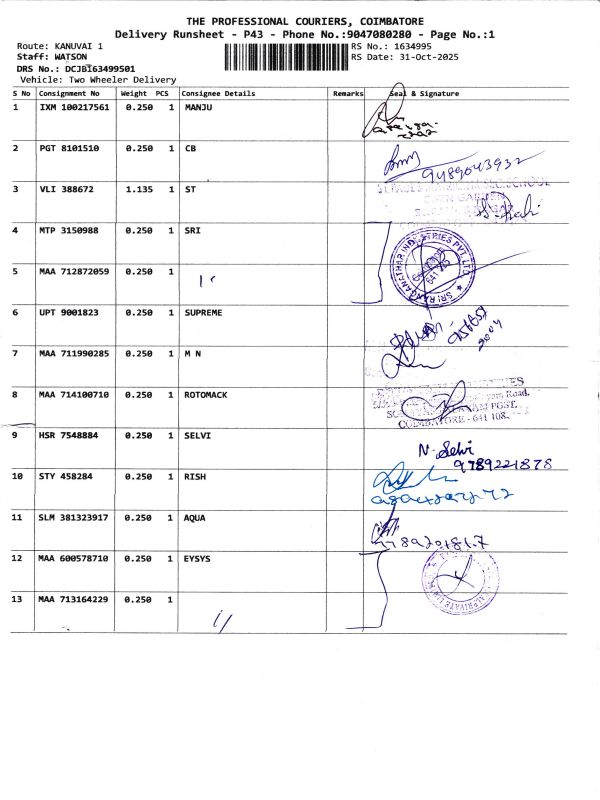 THE PROFESSIONAL COURIERS, COIMBATORE
Delivery Runsheet - P43 - Phone No.:9047080280 - Page No.:1
Route: KANUVAI 1 RS No.: 1634995
Staff: WATSON RS Date: 31-Oct-2025
DRS No.: DCJBI63499501
Vehicle: Two Wheeler Delivery
S No Consignment No Weight PCS Consignee Details Remarks Seal & Signature
1 IXM 100217561 0.250 1 MANJU
2 PGT 8101510 0.250 1 CB
9489043932
3 VLI 388672 1.135 1 ST
4 MTP 3150988 0.250 1 SRI
SRI RANGANATHAR INDUSTRIES PVT. LTD.
5 MAA 712872059 0.250 1
6 UPT 9001823 0.250 1 SUPREME
7 MAA 711990285 0.250 1 M N
8 MAA 714100710 0.250 1 ROTOMACK
COIMBATORE - 641 108.
9 HSR 7548884 0.250 1 SELVI
N. Selvi
9789221878
10 STY 458284 0.250 1 RISH
11 SLM 381323917 0.250 1 AQUA
12 MAA 600578710 0.250 1 EYSYS
13 MAA 713164229 0.250 1